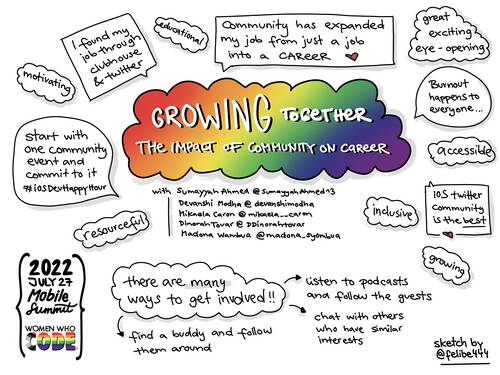 I found my
job through
clubhouse
& twitter
educational
Community has expanded
my job from just a job
into a CAREER
great
exciting
eye-opening
motivating
GROWING TOGETHER
THE IMPACT OF COMMUNITY ON CAREER
Burnout
happens to
everyone...
start with
one community
event and
commit to it
#iOSDevHappyHour
accessible
with Sumayyah Ahmed @SumayyahAhmed13
Devanshi Modha @devanshimodha
Mikaela Caron @mikaela__caron
Dinorah Tovar @DDinorahtovar
Madona Wambua @madona_syombua
resourceful
inclusive
IOS twitter
community
is the best
growing
2022
JULY 27
Mobile
Summit
WOMEN WHO
CODE
there are many
ways to get involved!!
listen to podcasts
and follow the guests
chat with others
who have similar
interests
find a buddy and follow
them around
sketch by
@felibe444